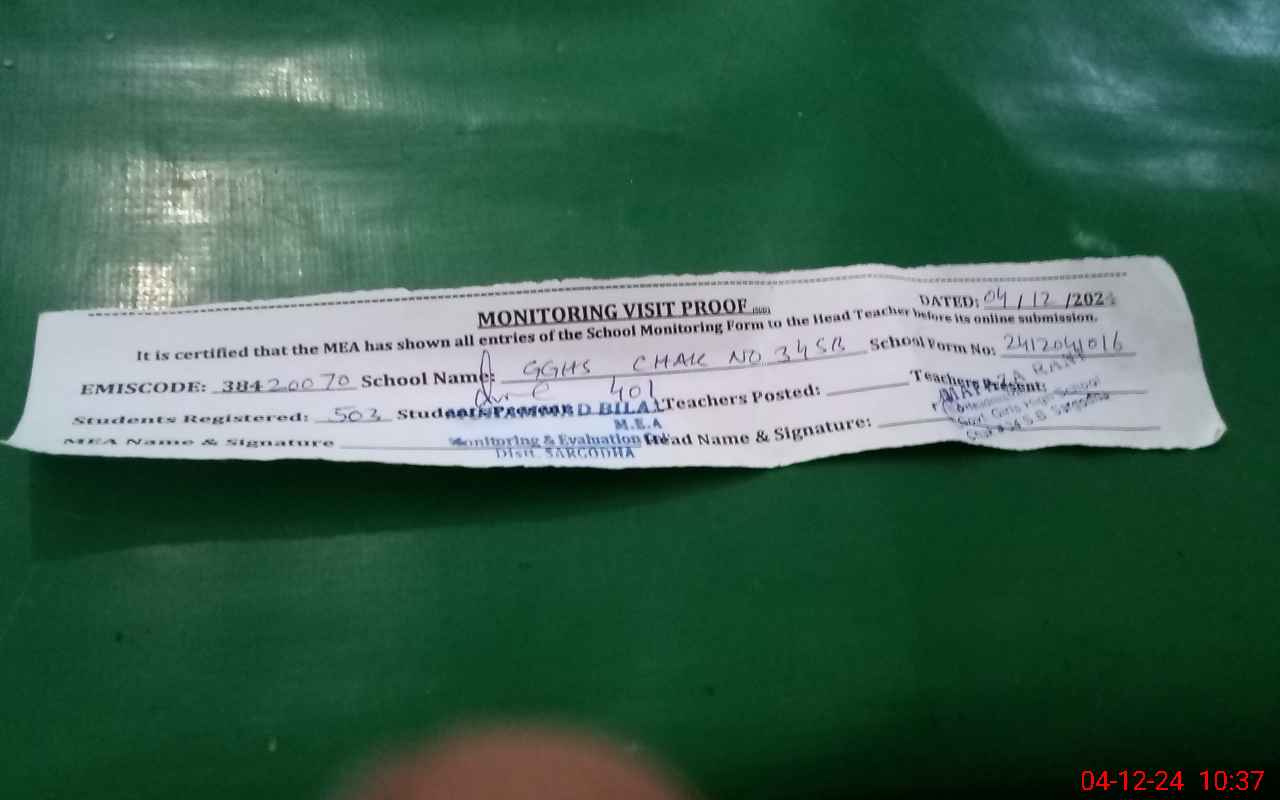 MONITORING VISIT PROOF
DATED: 04/12/2024
It is certified that the MEA has shown all entries of the School Monitoring Form to the Head Teacher before its online submission.
EMISCODE: 38420070 School Name: GGHS CHAK NO 34SB School Form No: 241204016
Students Registered: 503 Students Present: 401 Teachers Posted: Teachers Present:
MEA Name & Signature Head Name & Signature:
D BILAL
M.E.A
Monitoring & Evaluation
Distt. SARGODHA
Govt. Girls High School
34 S.B Sargodha
04-12-24 10:37